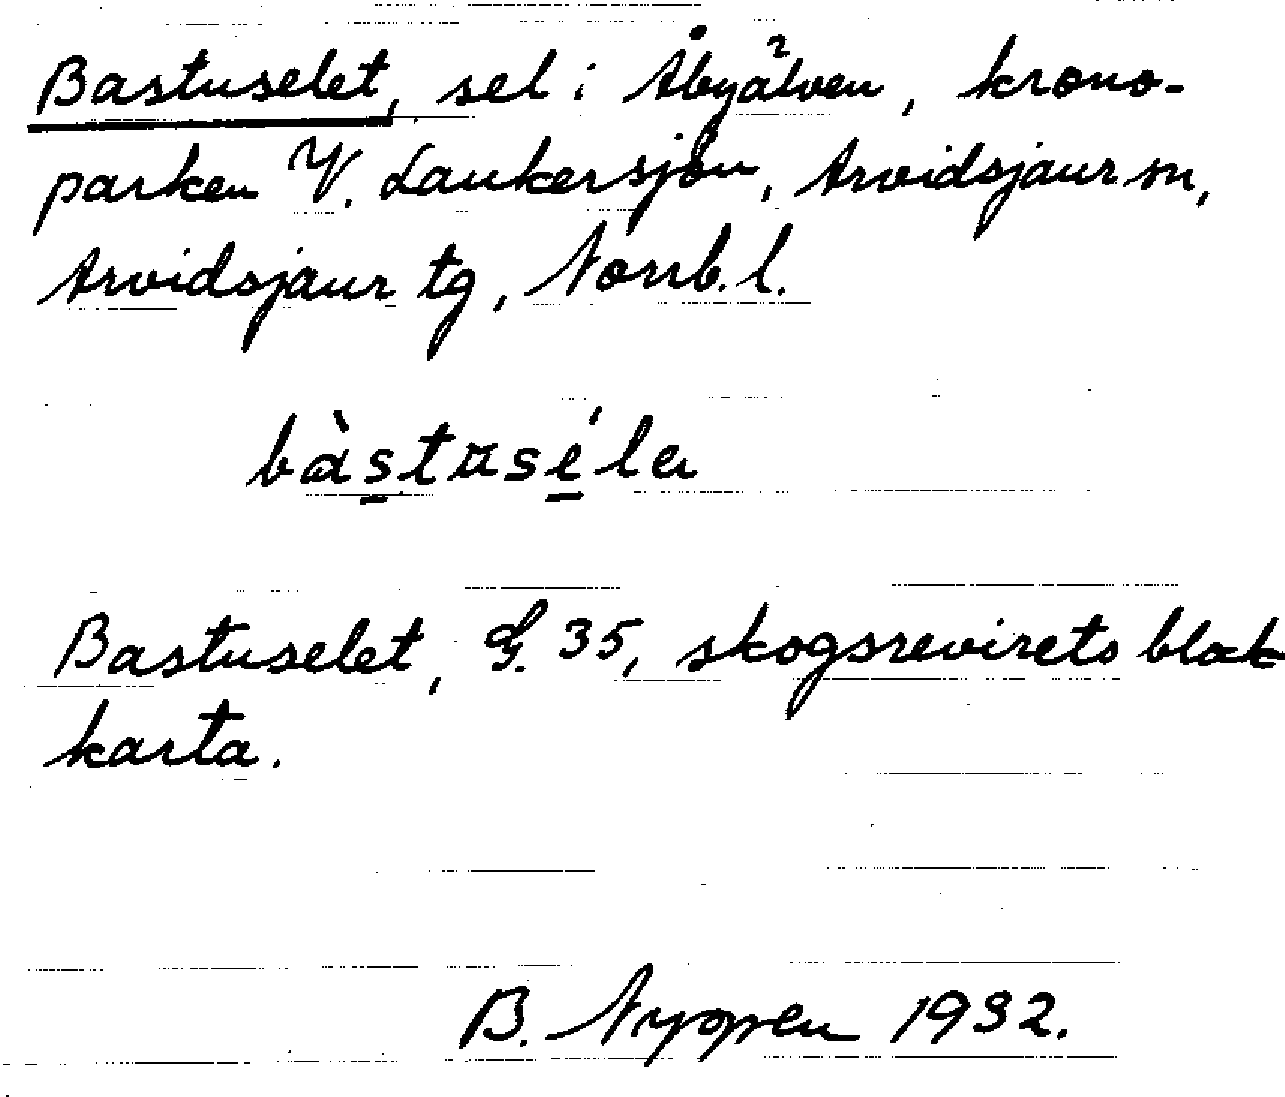 Bastuselet, sel i Åbyälven, krono-
parken V. Laukersjön, Arvidsjaur sn,
Arvidsjaur tg, Norrb. l.
Bastuselet, G. 35, skogsrevirets blok
karta.
B. Nyopen 1932.